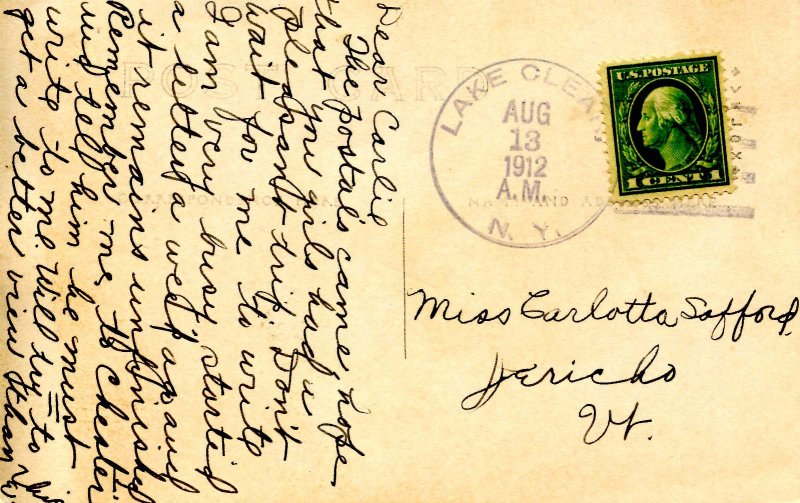 POST CARD
CORRESPONDENCE HERE
NAME AND ADDRESS HERE
Dear Carlie
The postals came hope
that you girls had a
pleasant trip. Don't
wait for me to write
I am very busy started
a letter a week ago and
it remains unfinished
Remember me to Chester
and tell him he must
write to me. Will try to
get a better view than
LAKE CLEAR
AUG
13
1912
A.M.
N.Y.
U.S. POSTAGE
1 CENT 1
Miss Carlotta Safford,
Jericho
Vt.